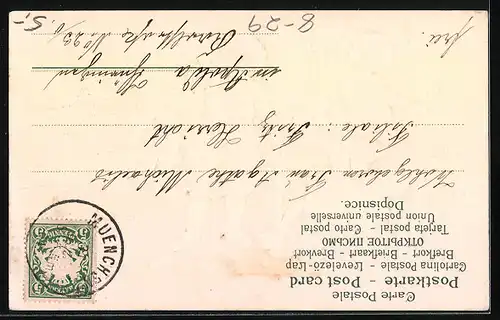 Carte Postale
Postkarte - Post card
Cartolina Postale - Levelező-Lap
Brefkort - Briefkaart - Brevkort
ОТКРЫТОЕ ПИСЬМО
Tarjeta postal - Carte postal
Union postale universelle
Dopisnice.
MUENCH
5
5
Wohlgeboren Frau Agathe Michaelis
Filiale: Fritz
in Apolda Thüringen
No. 23
frei.
8-29
5,-